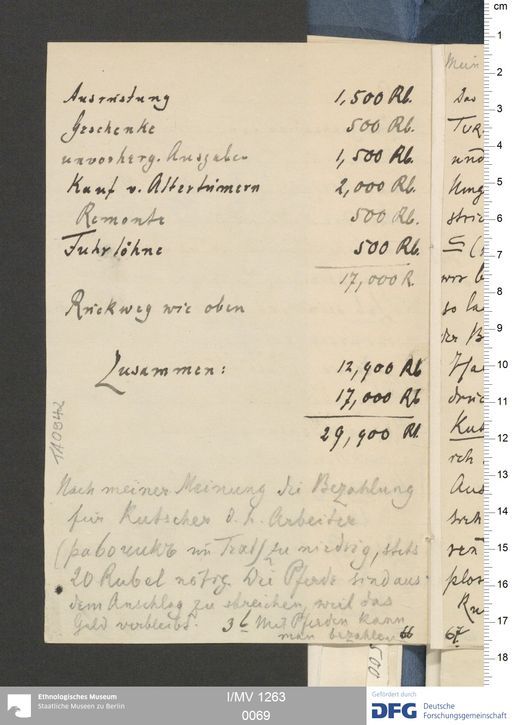 Ausrüstung 1,500 Rb.
Geschenke 500 Rb.
unvorherg. Ausgaben 1,500 Rb.
Kauf v. Altertümern 2,000 Rb.
Remonte 500 Rb.
Fuhrlöhne 500 Rb.
17,000 R.
Rückweg wie oben
Zusammen: 12,900 Rb
17,000 Rb
29,900 Rb.
TA0942
Nach meiner Meinung die Bezahlung
für Kutscher d. h. Arbeiter
(рабочикъ im Text) zu niedrig, stets
20 Rubel nötig. Die Pferde sind aus
dem Anschlag zu streichen, weil das
Geld verbleibt. 36 Mit Pferden kann
man bezahlen 66
Mein
Das
TUR
und
Umg
stric
wir b
so la
der B
Kut
rich
Aus
ren
plor
67
500
cm
1
2
3
4
5
6
7
8
9
10
11
12
13
14
15
16
17
18
Ethnologisches Museum
Staatliche Museen zu Berlin
I/MV 1263
0069
Gefördert durch
DFG Deutsche
Forschungsgemeinschaft